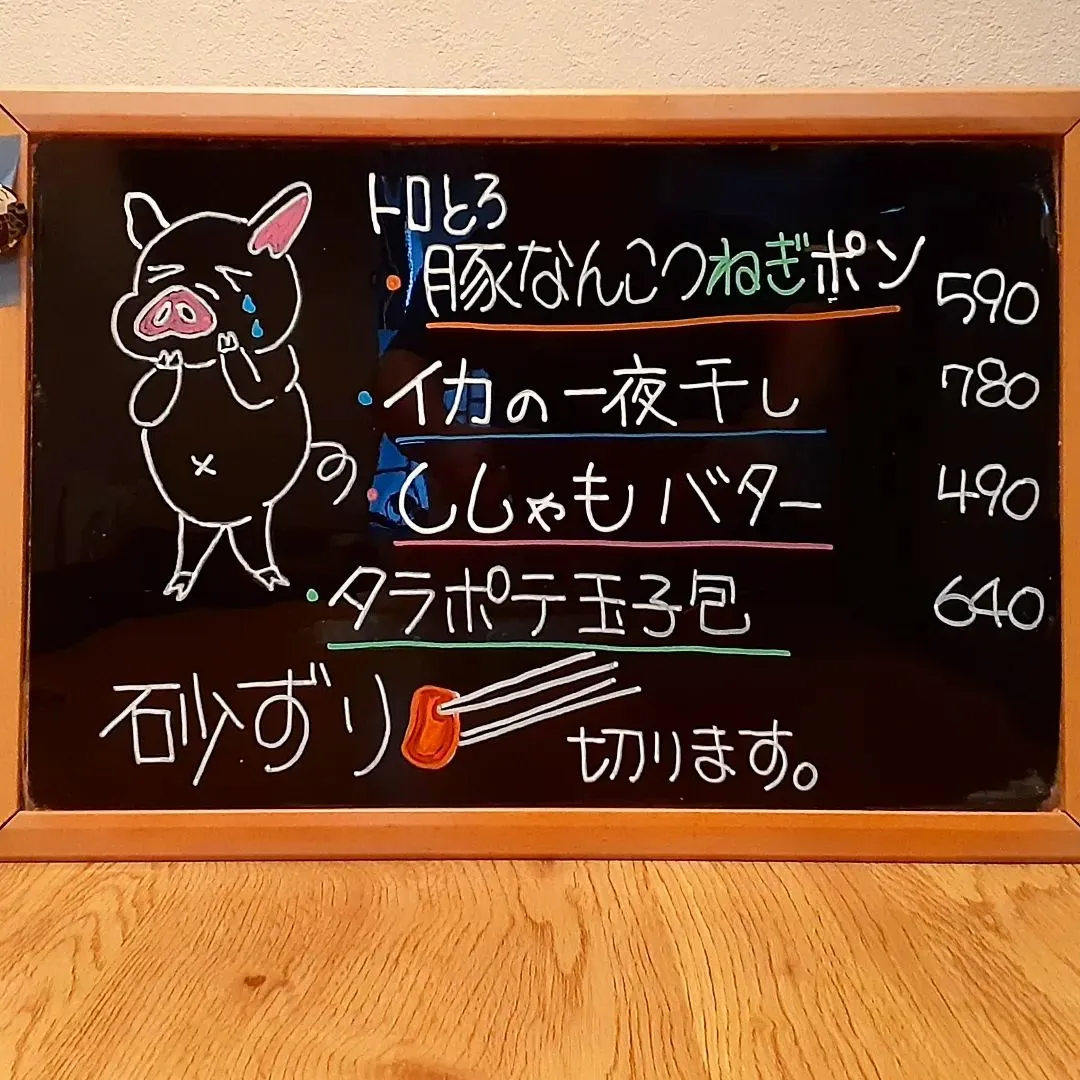 トロとろ
・豚なんこつねぎポン 590
・イカの一夜干し 780
・ししゃもバター 490
・タラポテ玉子包 640
砂ずり 切ります。